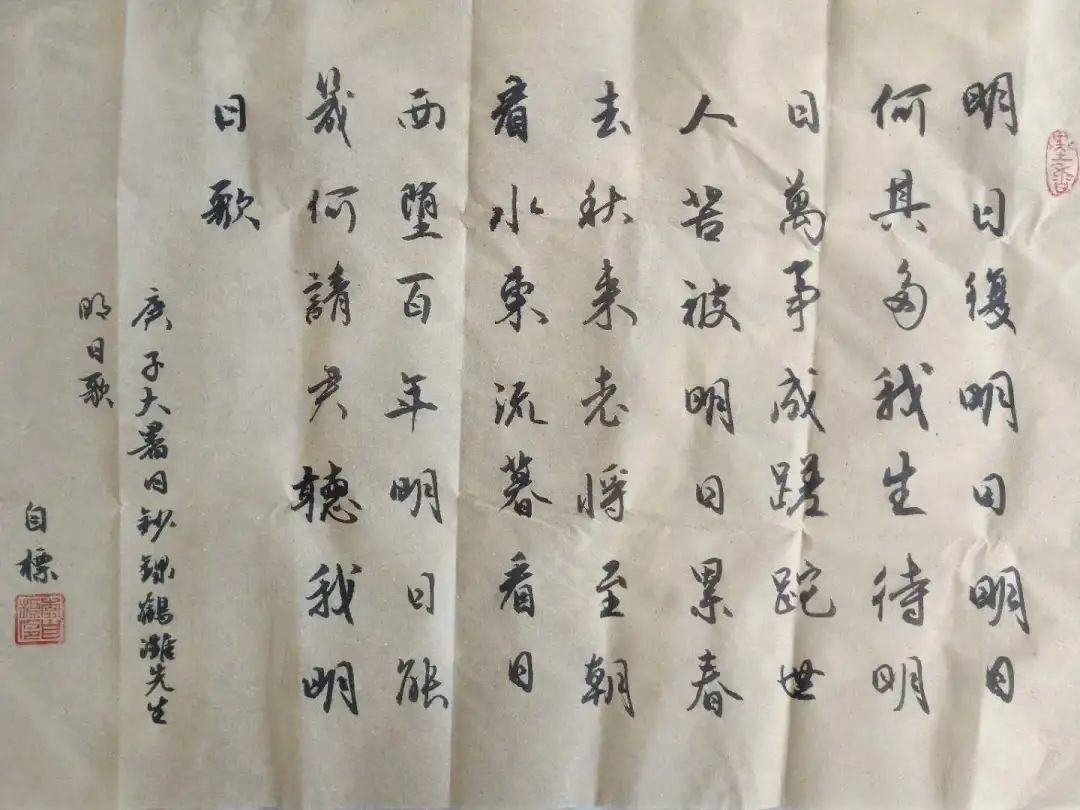 明日復明日明日
何其多我生待明
日萬事成蹉跎世
人苦被明日累春
去秋来老将至朝
看水東流暮看日
西墮百年明日能
幾何請君聽我明
日歌
庚子大暑日鈔録鶴灘先生
明日歌
自標
墨香